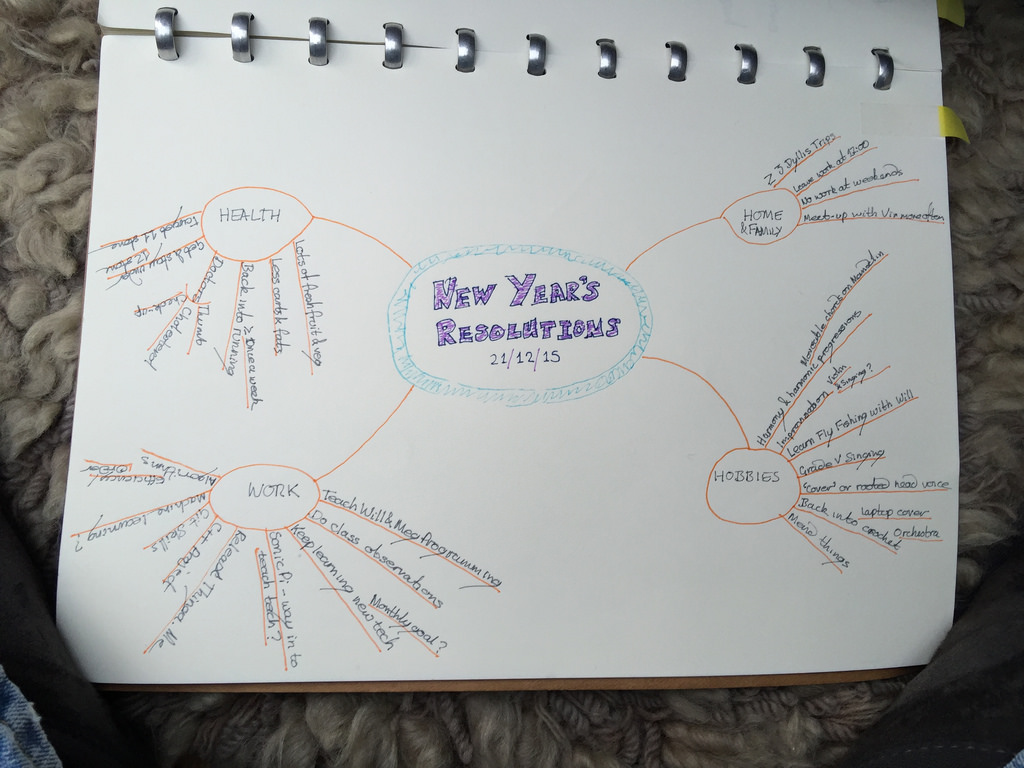 NEW YEAR'S
RESOLUTIONS
21/12/15
HEALTH
Target 11 stone
Get & stay under
12 stone
Doctors Thumb
Cholesterol
Check-up
Back into running
≥ Once a week
Less carbs & fats
Lots of fresh fruit & veg
HOME
& FAMILY
2 Idyllic Trips
Leave work at 17:00
No work at weekends
Meet-up with Vix more often
HOBBIES
Harmony & harmonic progressions
Moveable chords on Mandolin
Improvisation
Violin
& Singing?
Learn Fly Fishing with Will
Grade V Singing
'Cover' or rooted head voice
Back into crochet
Laptop cover
Orchestra
Movie things
WORK
Teach Will & Meg Programming
Do class observations
Keep learning new tech
Monthly goal?
Sonic Pi - way in to
teach tech?
Release Thinga.Me
C++ Project
Git Skills
Machine learning?
Algorithms
efficiency